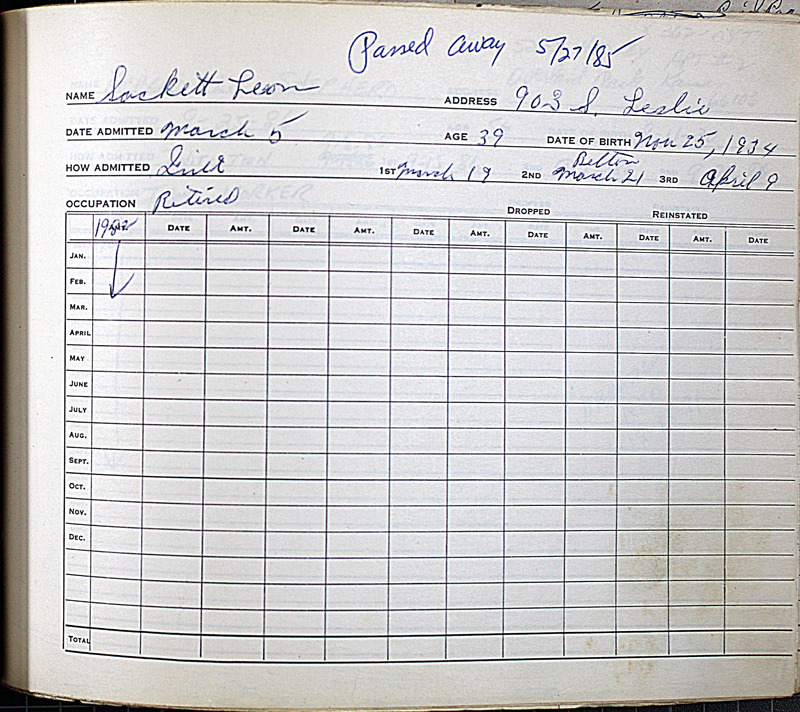 Passed away 5/27/85
NAME Sackett Leon ADDRESS 903 S. Leslie
DATE ADMITTED March 5 AGE 39 DATE OF BIRTH Nov 25, 1934
Belton
HOW ADMITTED Init 1ST March 19 2ND March 21 3RD April 9
OCCUPATION Retired
DROPPED REINSTATED
DATE AMT. DATE AMT. DATE AMT. DATE AMT. DATE AMT. DATE
JAN.
FEB.
MAR.
APRIL
MAY
JUNE
JULY
AUG.
SEPT.
OCT.
NOV.
DEC.
TOTAL